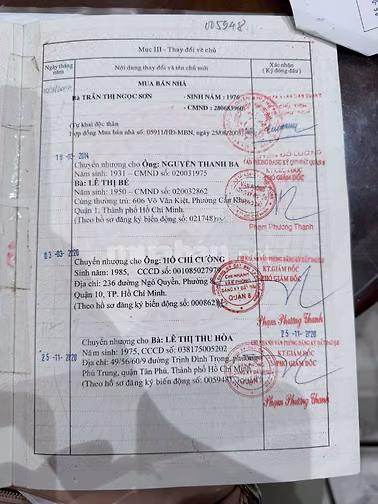 005948
Mục III - Thay đổi về chủ
Ngày tháng năm
Nội dung thay đổi và tên chủ mới
Xác nhận
( Ký đóng dấu)
MUA BÁN NHÀ
Bà TRẦN THỊ NGỌC SƠN - SINH NĂM : 1976
- CMND : 280683960
(Tự khai độc thân
Hợp đồng Mua bán nhà số: 05911/HĐ-MBN, ngày 25/08/200
18 - 02 - 2014
Chuyển nhượng cho Ông: NGUYỄN THANH BA
Năm sinh: 1931 – CMND số: 020031975
Và Bà: LÊ THỊ BÉ
Năm sinh: 1950 – CMND số: 020032862
Cùng thường trú: 606 Võ Văn Kiệt, Phường Cầu Kho,
Quận 1, Thành phố Hồ Chí Minh.
(Theo hồ sơ đăng ký biến động số: 021748
KT.GIÁM ĐỐC
PHÓ GIÁM ĐỐC
Phạm Phương Thanh
03 -03- 2020
Chuyển nhượng cho Ông: HỒ CHÍ CƯỜNG
Sinh năm: 1985, CCCD số: 001085027970
Địa chỉ: 236 đường Ngô Quyền, Phường
Quận 10, TP. Hồ Chí Minh.
(Theo hồ sơ đăng ký biến động số: 000862
CHI NHÁNH
VĂN PHÒNG
ĐĂNG KÝ ĐẤT ĐAI
QUẬN 8
KT.GIÁM ĐỐC
PHÓ GIÁM ĐỐC
Phạm Phương Thanh
25 -11- 2020
25 -11- 2020
Chuyển nhượng cho Bà: LÊ THỊ THU HÒA
Năm sinh: 1975, CCCD số: 038175005202
Địa chỉ: 49/56/60/9 đường Trịnh Đình Trọng, phường
Phú Trung, quận Tân Phú, Thành phố Hồ Chí Minh
(Theo hồ sơ đăng ký biến động số: 005948
KT.GIÁM ĐỐC
PHÓ GIÁM ĐỐC
Phạm Phương Thanh